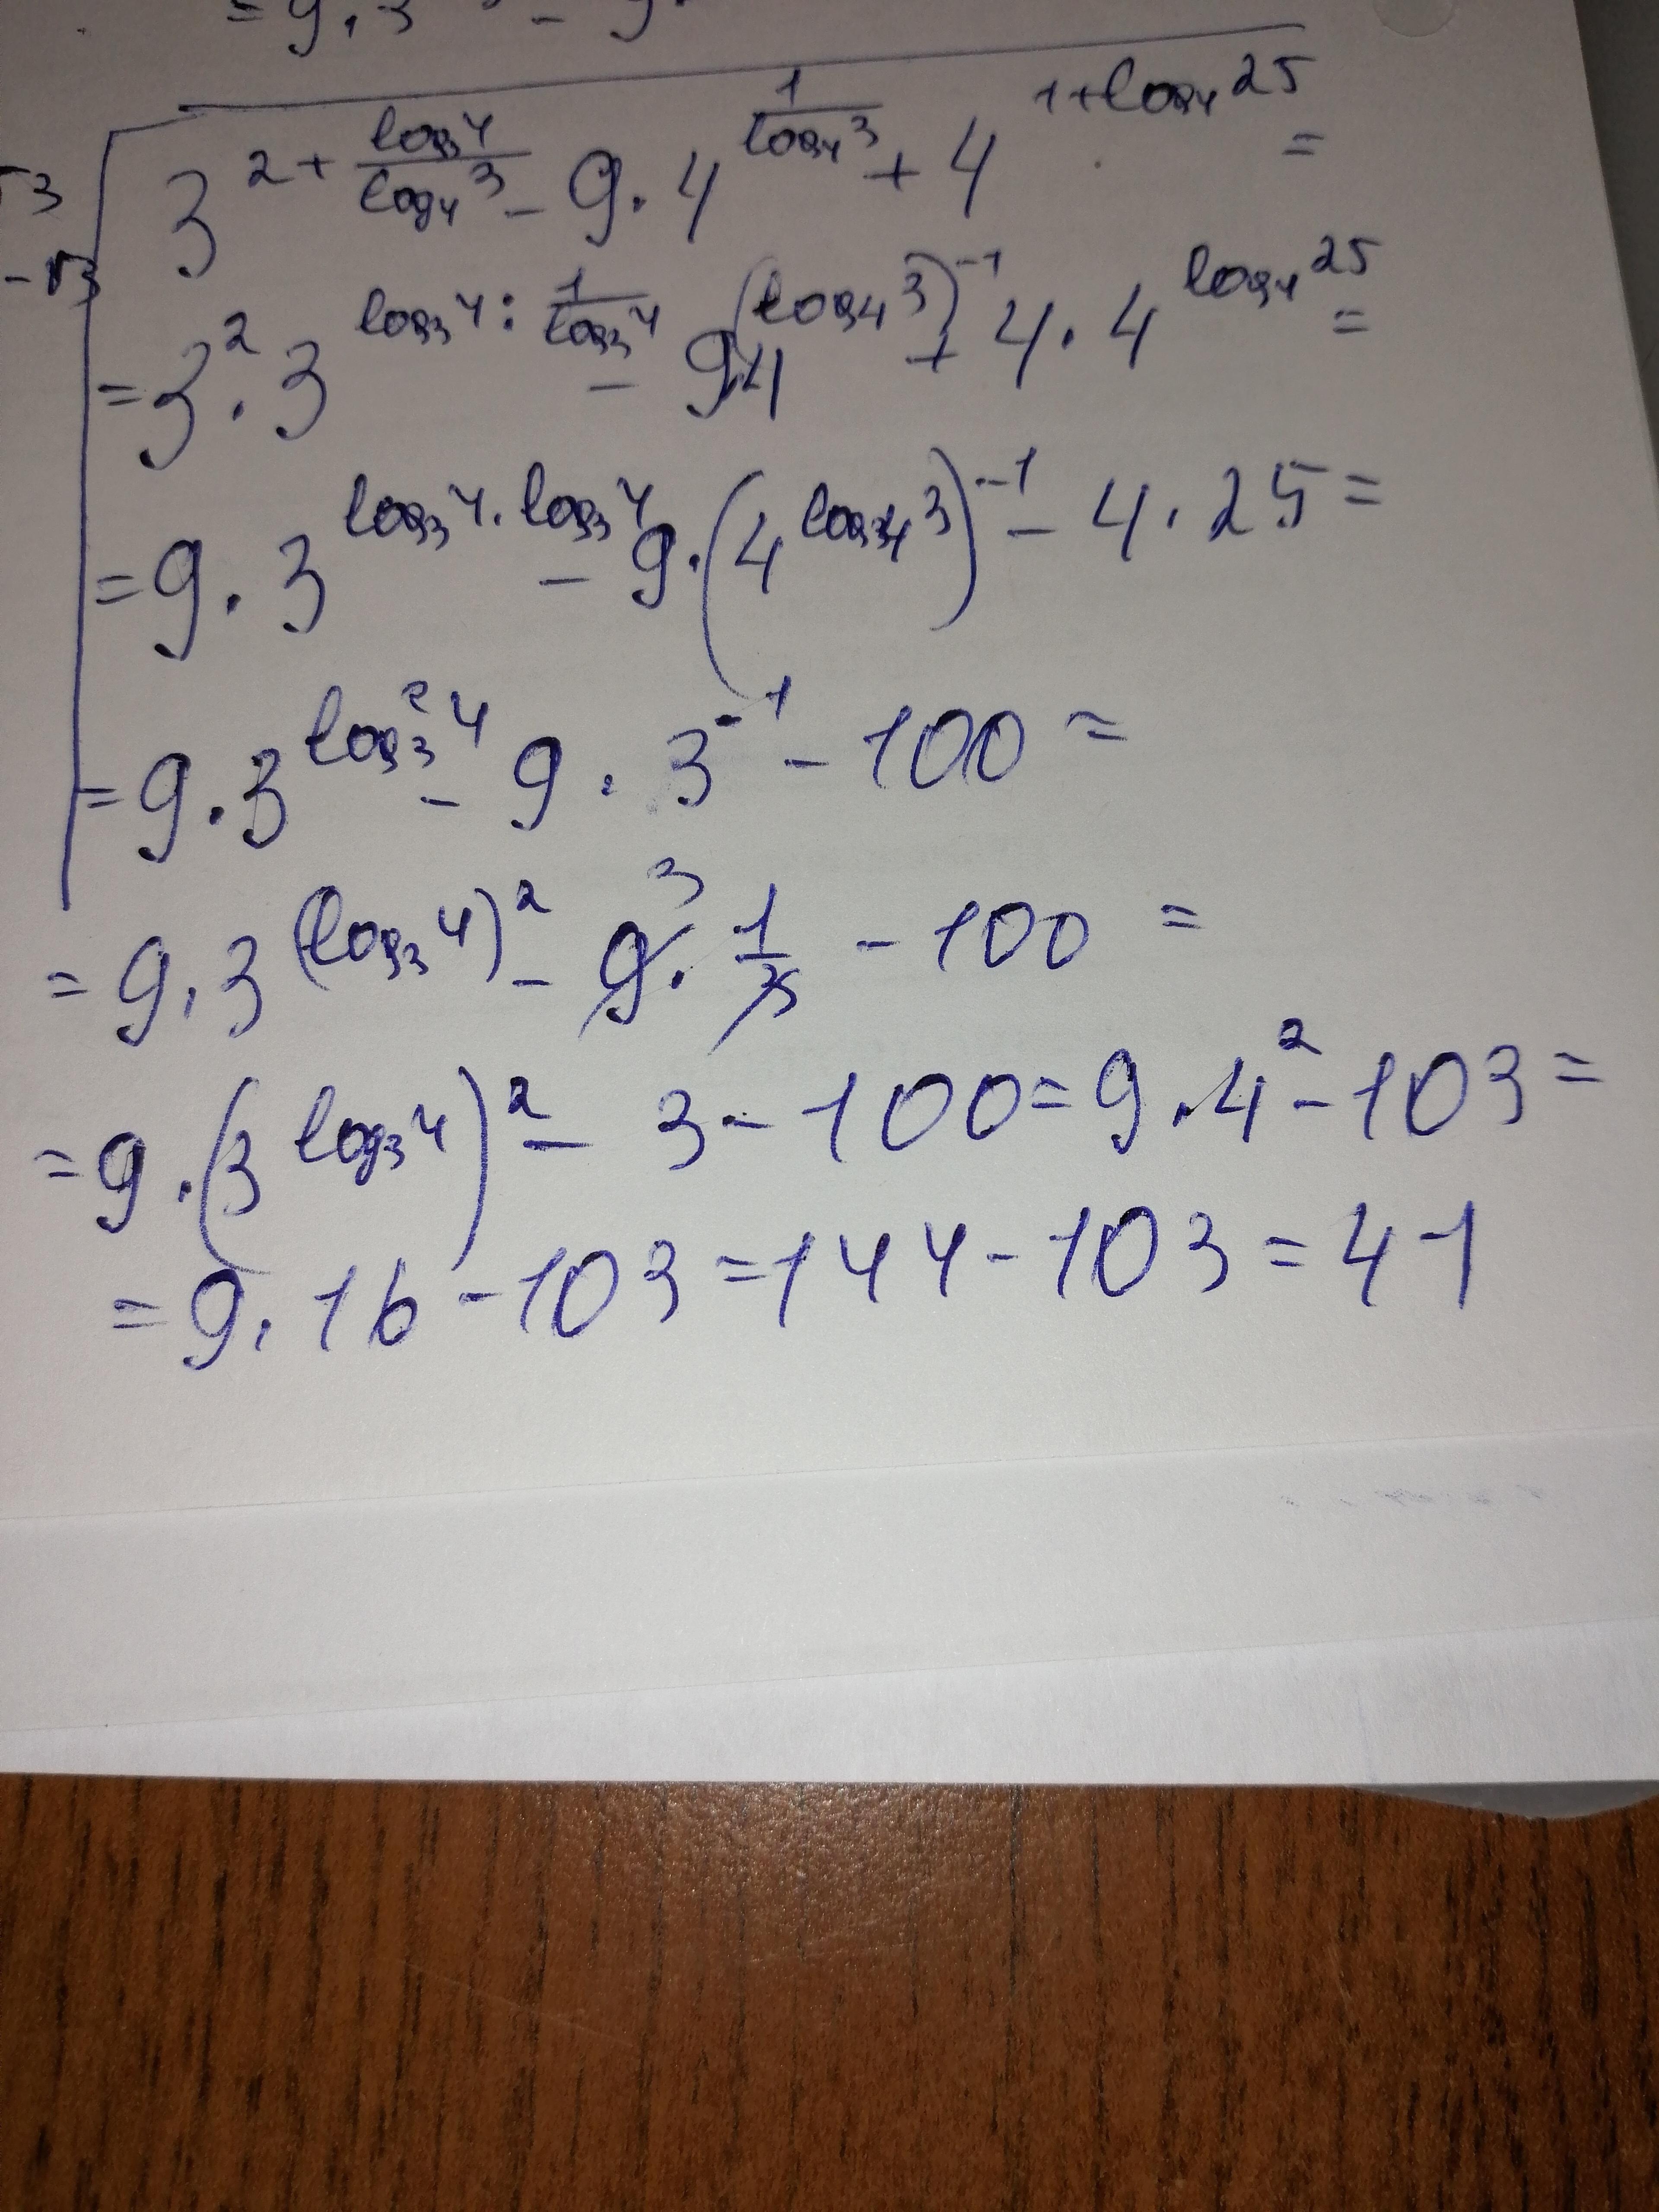 = 9 · 3 - 9
√3
-√3
3^(2 + log₃4/log₄3) - 9 · 4^(1/log₄3) + 4^(1+log₄25) =
= 3² · 3^(log₃4 : 1/log₃4) - 9·4^((log₄3)^-1) + 4 · 4^(log₄25) =
= 9 · 3^(log₃4 · log₃4) - 9 · (4^(log₄3))^-1 - 4 · 25 =
= 9 · 3^(log₃²4) - 9 · 3^-1 - 100 =
= 9 · 3^((log₃4)²) - 9³ · 1/3 - 100 =
= 9 · (3^(log₃4))² - 3 - 100 = 9 · 4² - 103 =
= 9 · 16 - 103 = 144 - 103 = 41